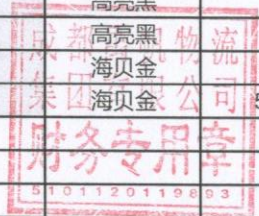 高亮黑
高亮黑
海贝金
海贝金
成都 物流
集团 限公司
财务专用章
5101120119893